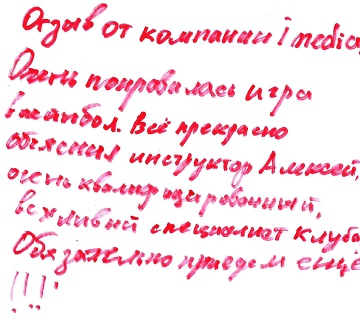 Отзыв от компании i medica
Очень понравилась игра
в пэйнтбол. Всё прекрасно
объяснил инструктор Алексей,
очень квалифицированный,
вежливый специалист клуба
Обязательно приедем ещё
!!!